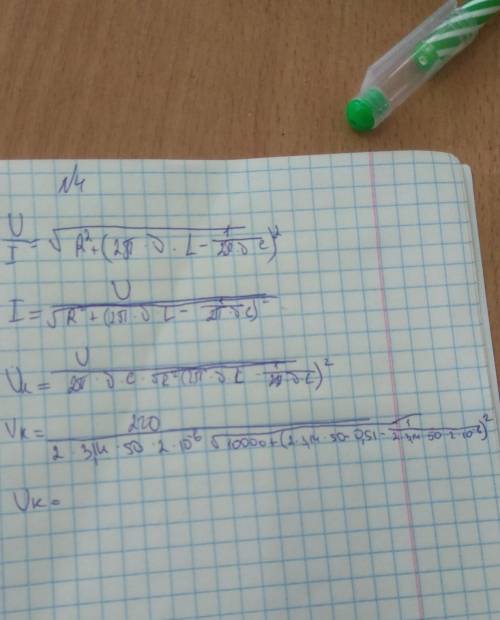 №4
U/I = √(R² + (2π · ν · L − 1/(2π · ν · C))²)
I = U / √(R² + (2π · ν · L − 1/(2π · ν · C))²)
Uк = U / (2π · ν · C · √(R² + (2π · ν · L − 1/(2π · ν · C))²))
Uк = 220 / (2 · 3,14 · 50 · 2 · 10⁻⁶ √(10000 + (2 · 3,14 · 50 · 0,51 − 1/(2 · 3,14 · 50 · 2 · 10⁻⁶))²))
Uк =